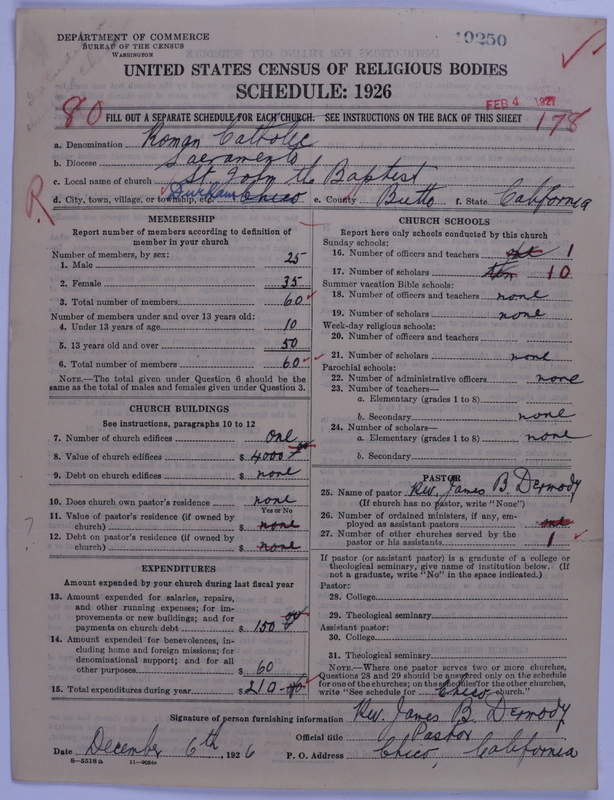 DEPARTMENT OF COMMERCE
BUREAU OF THE CENSUS
WASHINGTON
19250
UNITED STATES CENSUS OF RELIGIOUS BODIES
SCHEDULE: 1926
80
FEB 4 1927
178
FILL OUT A SEPARATE SCHEDULE FOR EACH CHURCH. SEE INSTRUCTIONS ON THE BACK OF THIS SHEET
a. Denomination Roman Catholic
b. Diocese Sacramento
c. Local name of church St. John the Baptist
R
d. City, town, village, or township, etc. Durham Chico e. County Butte f. State California
MEMBERSHIP
Report number of members according to definition of
member in your church
Number of members, by sex:
1. Male 25
2. Female 35
3. Total number of members 60
Number of members under and over 13 years old:
4. Under 13 years of age 10
5. 13 years old and over 50
6. Total number of members 60
NOTE.—The total given under Question 6 should be
same as the total of males and females given under Question 3.
CHURCH BUILDINGS
See instructions, paragraphs 10 to 12
7. Number of church edifices one
8. Value of church edifices $ 4000 00
9. Debt on church edifices $ none
10. Does church own pastor's residence none
Yes or No
11. Value of pastor's residence (if owned by
church) $ none
12. Debt on pastor's residence (if owned by
church) $ none
EXPENDITURES
Amount expended by your church during last fiscal year
13. Amount expended for salaries, repairs,
and other running expenses; for im-
provements or new buildings; and for
payments on church debt $ 150 00
14. Amount expended for benevolences, in-
cluding home and foreign missions; for
denominational support; and for all
other purposes $ 60
15. Total expenditures during year $ 210
CHURCH SCHOOLS
Report here only schools conducted by this church
Sunday schools:
16. Number of officers and teachers one 1
17. Number of scholars ten 10
Summer vacation Bible schools:
18. Number of officers and teachers none
19. Number of scholars none
Week-day religious schools:
20. Number of officers and teachers
21. Number of scholars none
Parochial schools:
22. Number of administrative officers none
23. Number of teachers—
a. Elementary (grades 1 to 8)
b. Secondary none
24. Number of scholars—
a. Elementary (grades 1 to 8) none
b. Secondary
PASTOR
25. Name of pastor Rev. James B. Dermody
(If church has no pastor, write "None")
26. Number of ordained ministers, if any, em-
ployed as assistant pastors one
27. Number of other churches served by the
pastor or his assistants 1
If pastor (or assistant pastor) is a graduate of a college or
theological seminary, give name of institution below. (If
not a graduate, write "No" in the space indicated.)
Pastor:
28. College
29. Theological seminary
Assistant pastor:
30. College
31. Theological seminary
NOTE.—Where one pastor serves two or more churches,
Questions 28 and 29 should be answered only on the schedule
for one of the churches; on the schedules for the other churches,
write "See schedule for Chico church."
Signature of person furnishing information Rev. James B. Dermody
Official title Pastor
Date December 6th, 1926 P. O. Address Chico, California
8—5518 a 11—9054